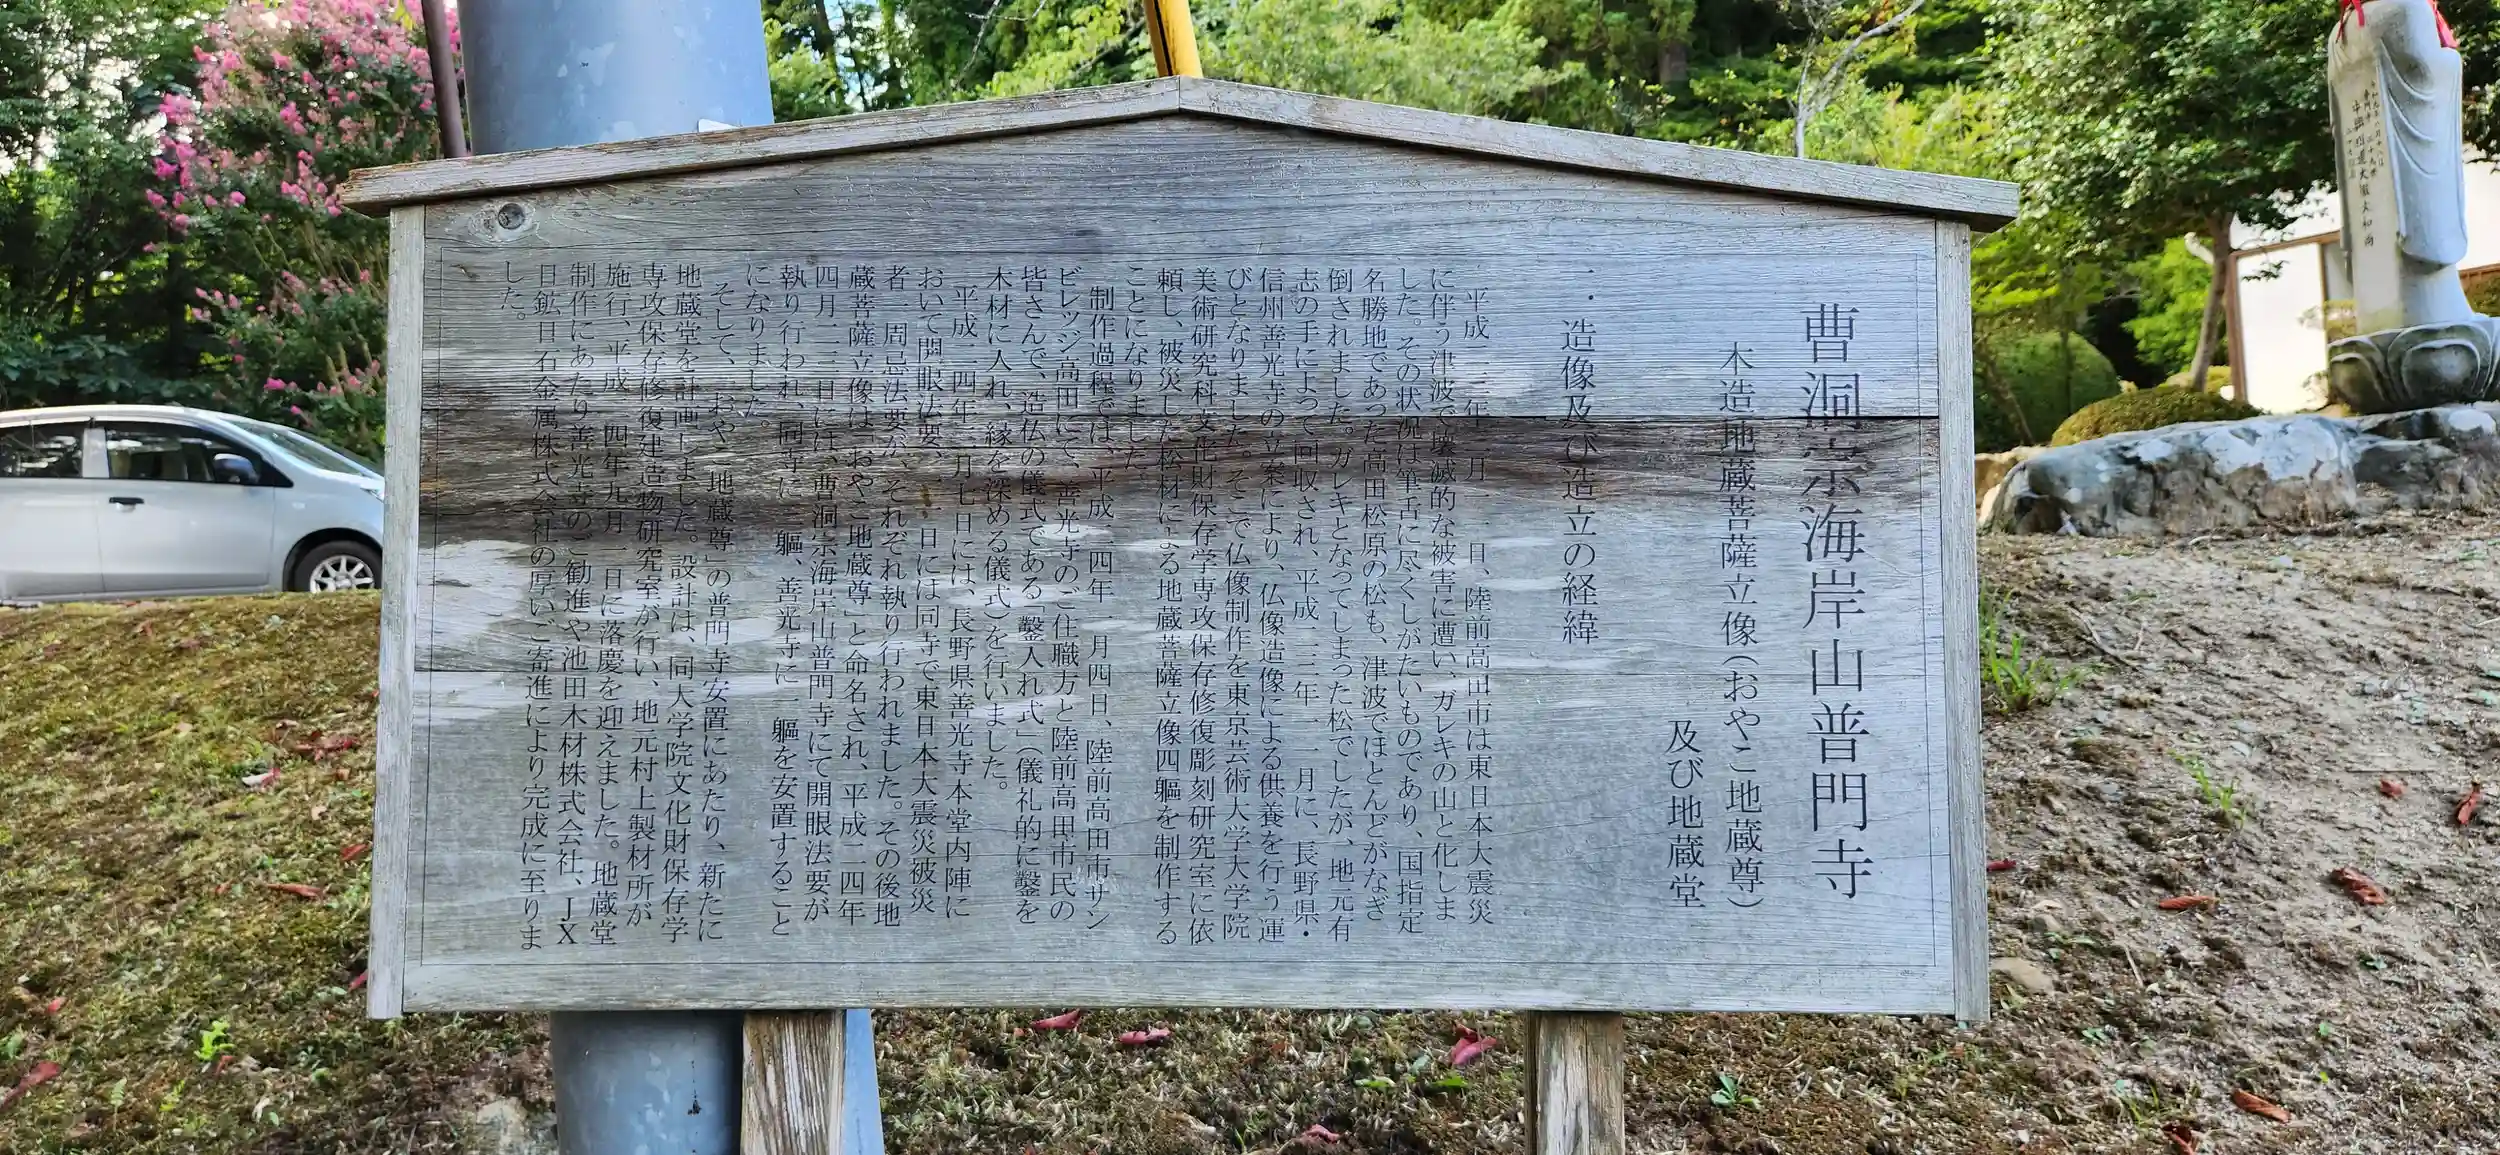 曹洞宗海岸山普門寺
木造地蔵菩薩立像(おやこ地蔵尊)
及び地蔵堂
一.造像及び造立の経緯
平成二三年三月一一日、陸前高田市は東日本大震災
に伴う津波で壊滅的な被害に遭い、ガレキの山と化しま
した。その状況は筆舌に尽くしがたいものであり、国指定
名勝地であった高田松原の松も、津波でほとんどがなぎ
倒されました。ガレキとなってしまった松でしたが、地元有
志の手によって回収され、平成二三年一一月に、長野県・
信州善光寺の立案により、仏像造像による供養を行う運
びとなりました。そこで仏像制作を東京芸術大学大学院
美術研究科文化財保存学専攻保存修復彫刻研究室に依
頼し、被災した松材による地蔵菩薩立像四軀を制作する
ことになりました。
制作過程では、平成二四年一月四日、陸前高田市サン
ビレッジ高田にて、善光寺のご住職方と陸前高田市民の
皆さんで、造仏の儀式である「鑿入れ式」(儀礼的に鑿を
木材に入れ、縁を深める儀式)を行いました。
平成二四年三月七日には、長野県善光寺本堂内陣に
おいて開眼法要、一一日には同寺で東日本大震災被災
者一周忌法要が、それぞれ執り行われました。その後地
蔵菩薩立像は「おやこ地蔵尊」と命名され、平成二四年
四月二三日には、曹洞宗海岸山普門寺にて開眼法要が
執り行われ、同寺に三軀、善光寺に一軀を安置すること
になりました。
そして、「おやこ地蔵尊」の普門寺安置にあたり、新たに
地蔵堂を計画しました。設計は、同大学院文化財保存学
専攻保存修復建造物研究室が行い、地元村上製材所が
施行、平成二四年九月一日に落慶を迎えました。地蔵堂
制作にあたり善光寺のご勧進や池田木材株式会社、JX
日鉱日石金属株式会社の厚いご寄進により完成に至りま
した。